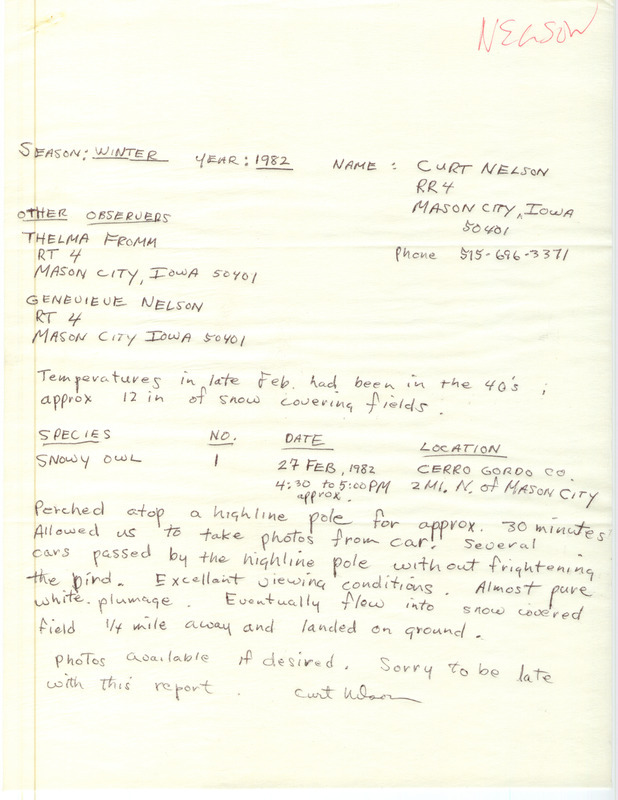 NELSON
SEASON: WINTER YEAR: 1982 NAME: CURT NELSON
RR 4
MASON CITY, IOWA
50401
Phone 515-696-3371
OTHER OBSERVERS
THELMA FROMM
RT 4
MASON CITY, IOWA 50401
GENEVIEVE NELSON
RT 4
MASON CITY IOWA 50401
Temperatures in late Feb. had been in the 40's;
approx 12 in of snow covering fields.
SPECIES NO. DATE LOCATION
SNOWY OWL 1 27 FEB, 1982 CERRO GORDO CO.
4:30 to 5:00 PM 2 MI. N. of MASON CITY
approx.
Perched atop a highline pole for approx. 30 minutes.
Allowed us to take photos from car. Several
cars passed by the highline pole without frightening
the bird. Excellant viewing conditions. Almost pure
white plumage. Eventually flew into snow covered
field 1/4 mile away and landed on ground.
Photos available if desired. Sorry to be late
with this report. Curt Nelson